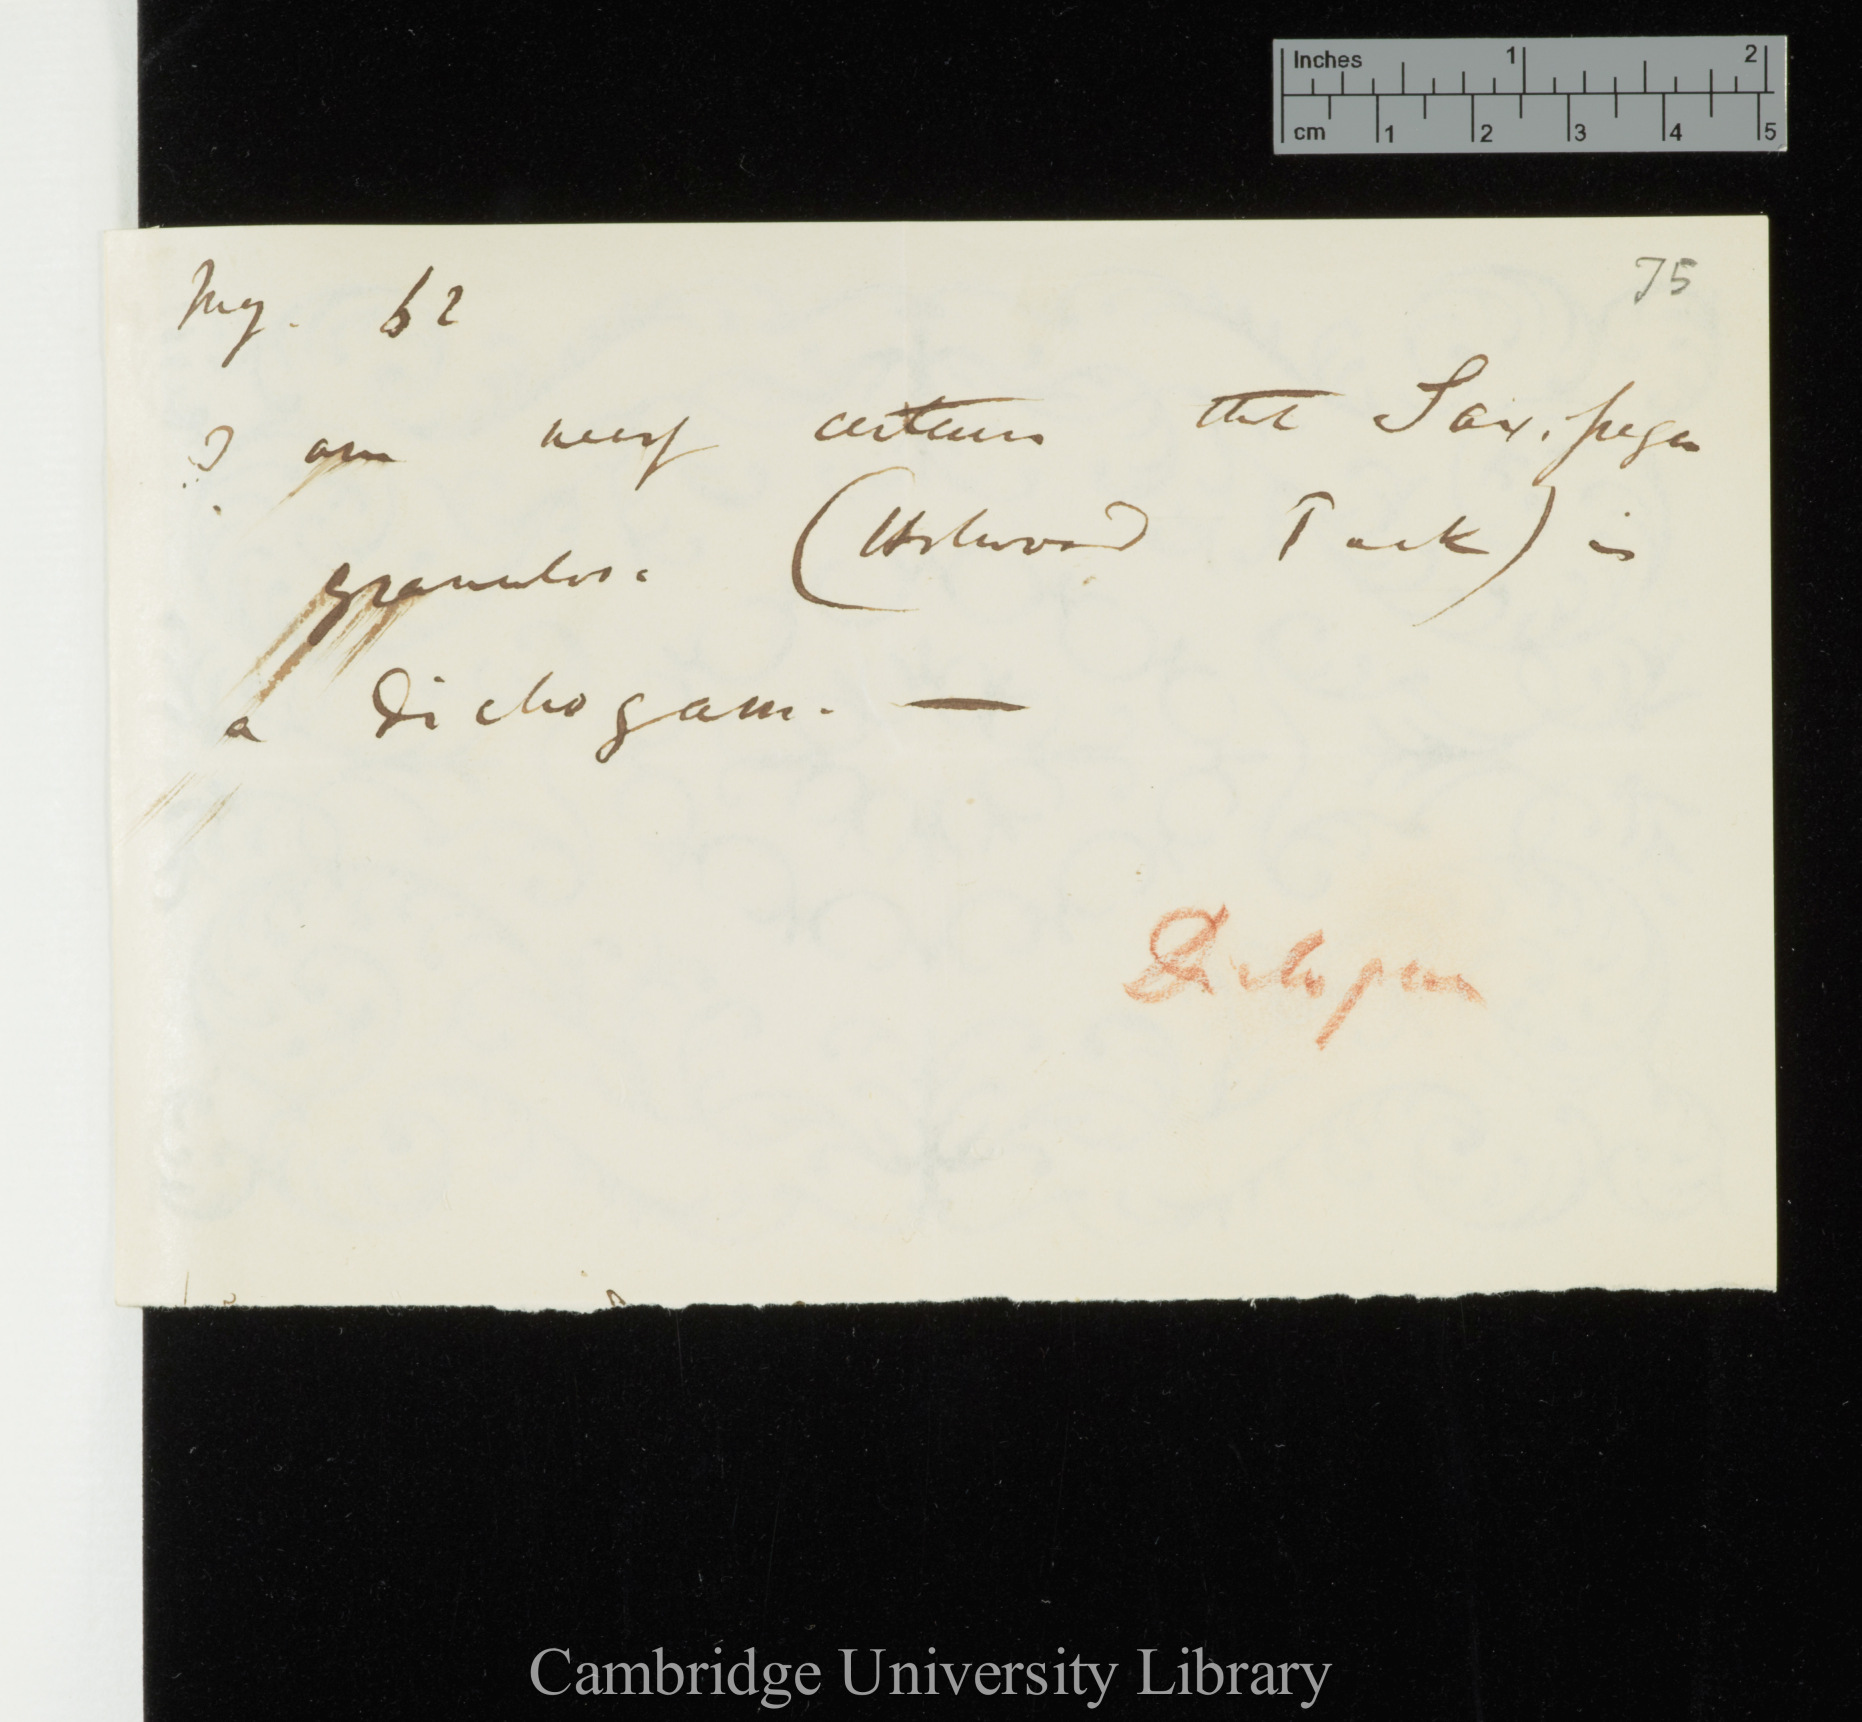 Inches 1 2
cm 1 2 3 4 5
75
May. 62
I am nearly certain that Saxifraga
granulosa (Holwood Park) is
a Dichogam. —
Dichogam
Cambridge University Library